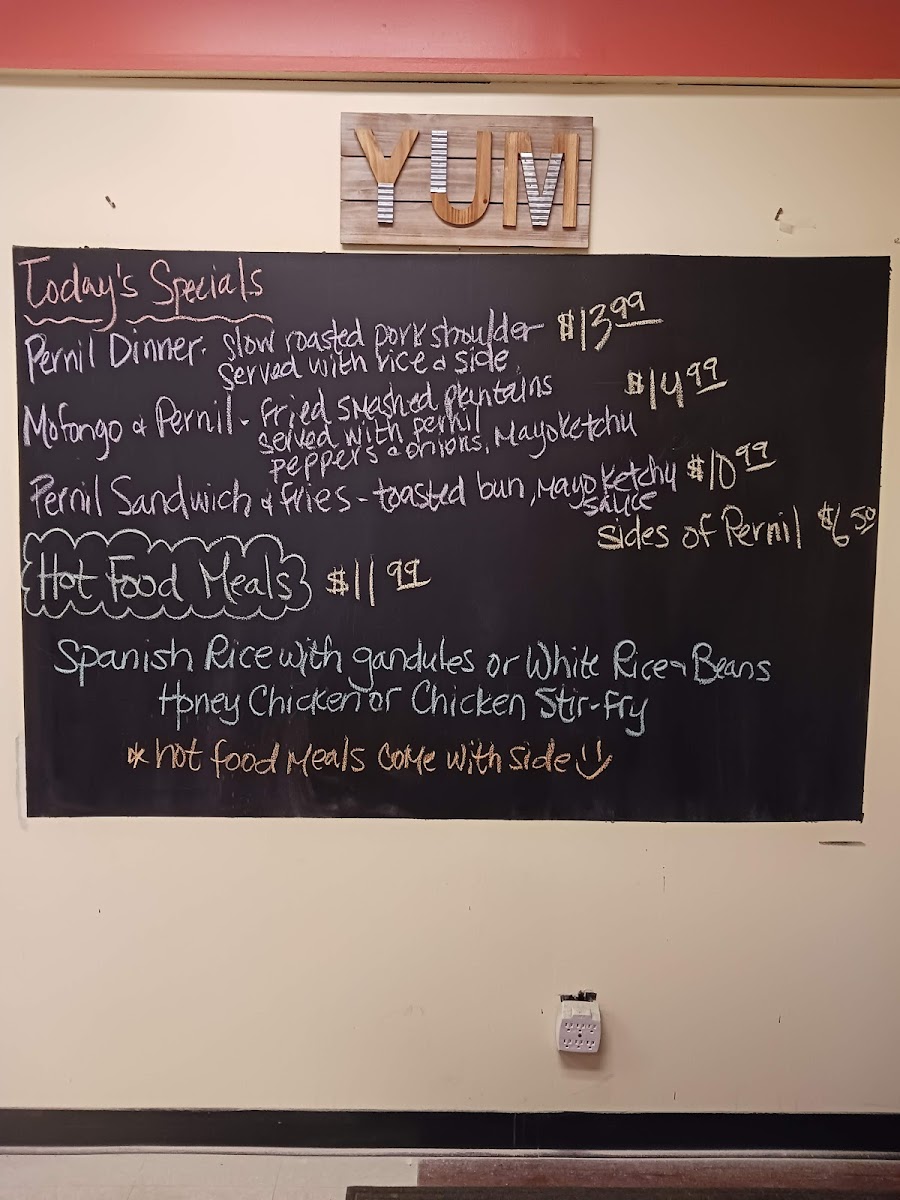 YUM
Today's Specials
Pernil Dinner. Slow roasted pork shoulder $13.99
served with rice & side
Mofongo & Pernil - fried smashed plantains $14.99
served with pernil
peppers & onions, Mayoketchu
Pernil Sandwich & fries - toasted bun, Mayoketchy $10.99
sauce
sides of Pernil $6.50
Hot Food Meals $11.99
Spanish Rice with gandules or White Rice & Beans
Honey Chicken or Chicken Stir-fry
* hot food meals come with side